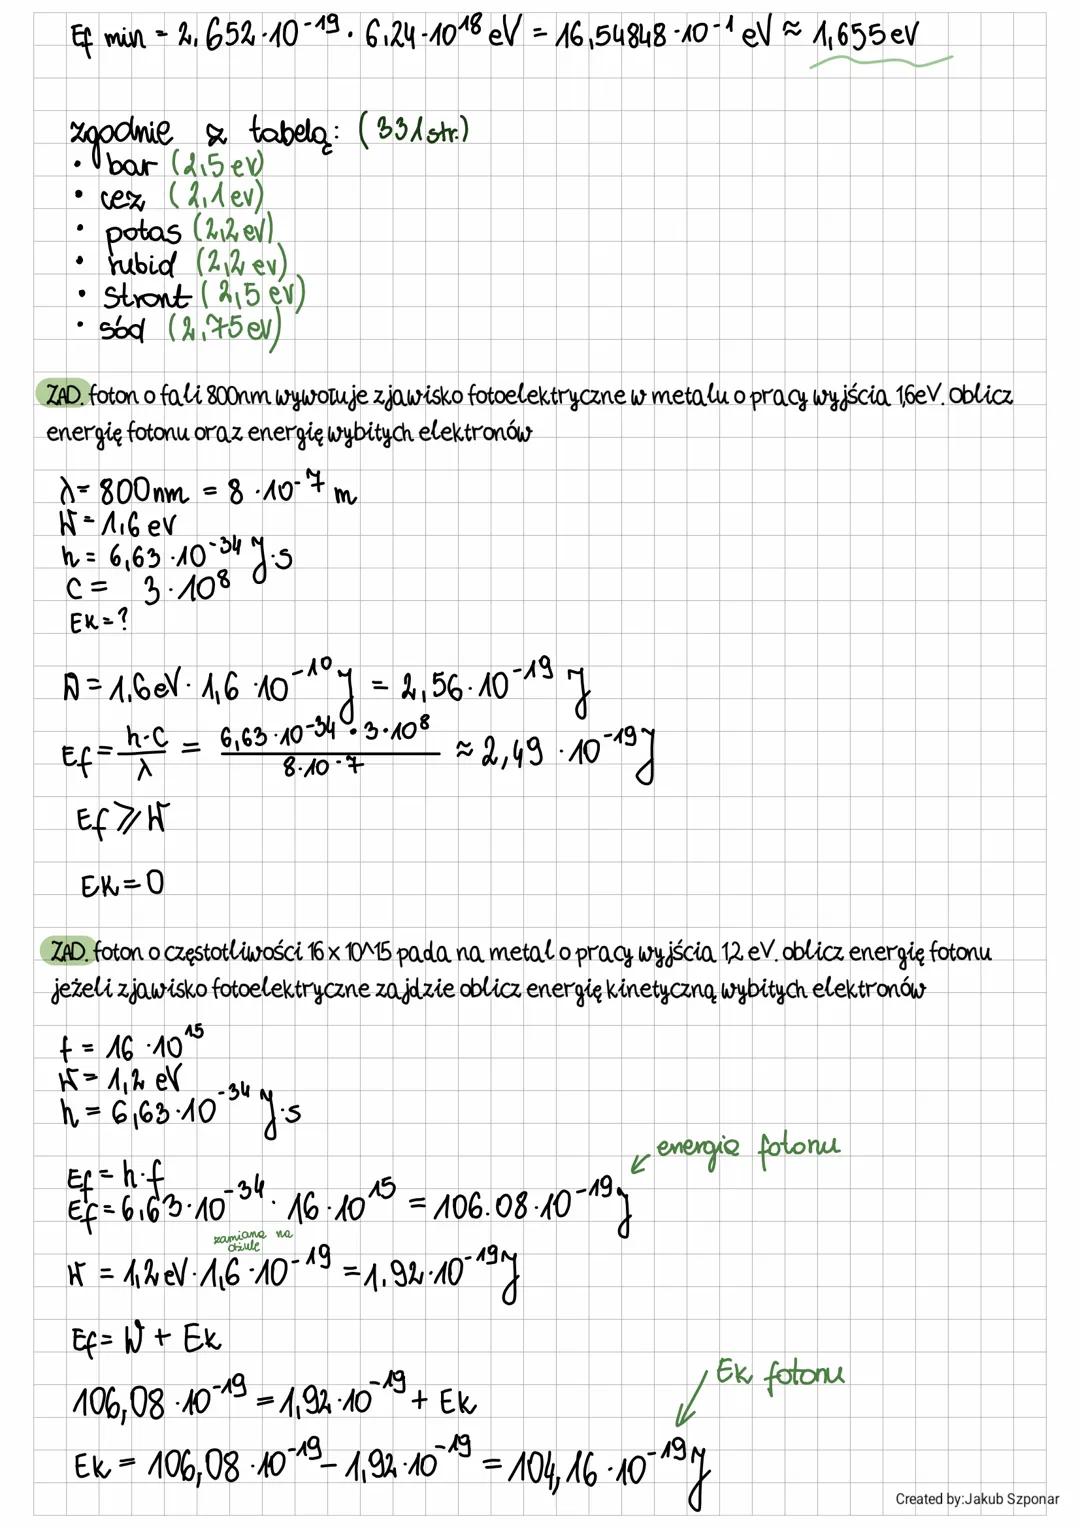 Ef min = 2,652·10⁻¹⁹ · 6,24·10¹⁸ eV = 16,54848·10⁻¹ eV ≈ 1,655 eV
zgodnie z tabelą: (331 str.)
• bar (2,5 eV)
• cez (2,1 eV)
• potas (2,2 eV)
• rubid (2,2 eV)
• Stront (2,5 eV)
• sód (2,75 eV)
ZAD. foton o fali 800nm wywołuje zjawisko fotoelektryczne w metalu o pracy wyjścia 1,6eV. Oblicz
energię fotonu oraz energię wybitych elektronów
λ = 800nm = 8·10⁻⁷ m
W = 1,6 eV
h = 6,63·10⁻³⁴ J·s
C = 3·10⁸
EK = ?
W = 1,6eV · 1,6·10⁻¹⁰ J = 2,56·10⁻¹⁹ J
Ef = h·c / λ = 6,63·10⁻³⁴ · 3·10⁸ / 8·10⁻⁷ ≈ 2,49·10⁻¹⁹ J
Ef ⩾ W
EK = 0
ZAD. foton o częstotliwości 16 x 10^15 pada na metal o pracy wyjścia 1,2 eV. oblicz energię fotonu
jeżeli zjawisko fotoelektryczne zajdzie oblicz energię kinetyczną wybitych elektronów
f = 16·10¹⁵
W = 1,2 eV
h = 6,63·10⁻³⁴ J·s
energia fotonu
Ef = h·f
Ef = 6,63·10⁻³⁴ · 16·10¹⁵ = 106.08·10⁻¹⁹ J
zamiana na
dżule
W = 1,2 eV · 1,6·10⁻¹⁹ = 1,92·10⁻¹⁹ J
Ef = W + Ek
Ek fotonu
106,08·10⁻¹⁹ = 1,92·10⁻¹⁹ + Ek
Ek = 106,08·10⁻¹⁹ – 1,92·10⁻¹⁹ = 104,16·10⁻¹⁹ J
Created by:Jakub Szponar